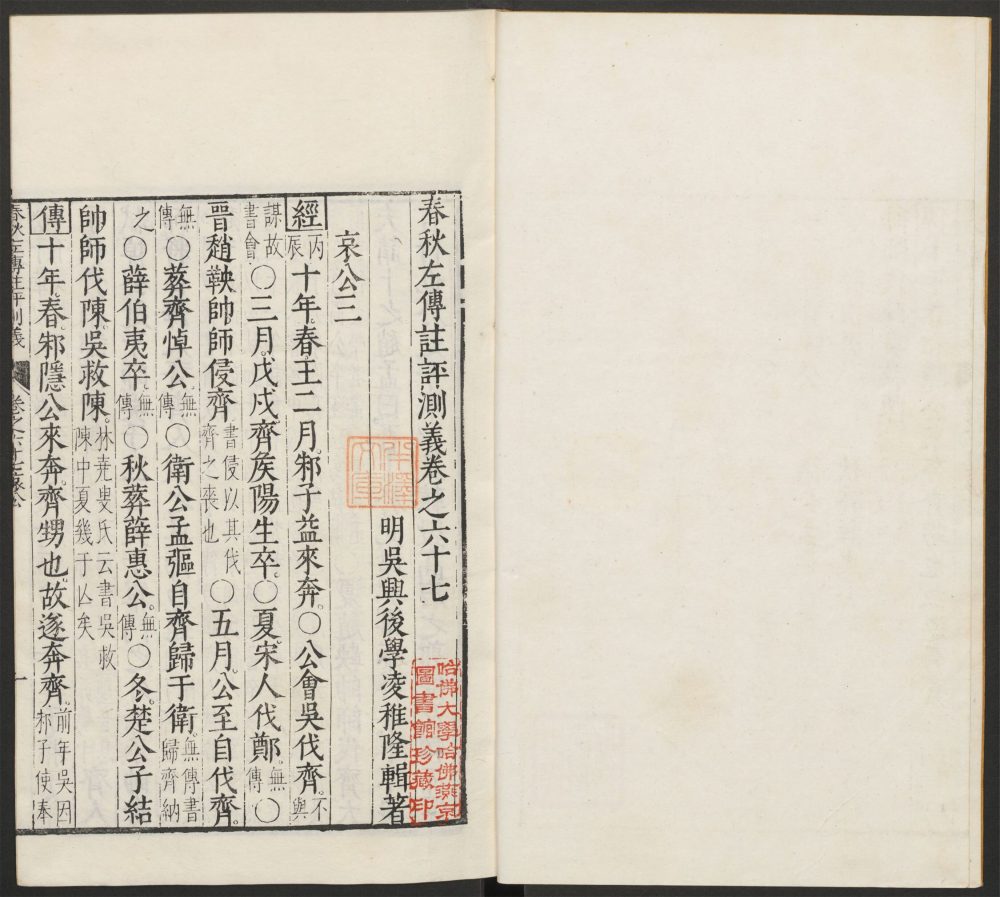 春秋左傳註評測義卷之六十七
明吳興後學凌稚隆輯著
哀公三
經丙辰十年春王二月邾子益來奔○公會吳伐齊不與
謀故書會○三月戊戌齊矦陽生卒○夏宋人伐鄭無傳○
晉趙鞅帥師侵齊書侵以其伐齊之喪也○五月公至自伐齊
無傳○葬齊悼公無傳○衛公孟彄自齊歸于衛無傳書歸齊納
之○薛伯夷卒無傳○秋葬薛惠公無傳○冬楚公子結
帥師伐陳吳救陳林堯叟氏云書吳救陳中夏幾于亾矣
傳十年春邾隱公來奔齊甥也故遂奔齊前年吳因邾子使奉
春秋左傳註評測義 卷之六十七哀公 一
哈佛大學哈佛燕京
圖書館珍藏印